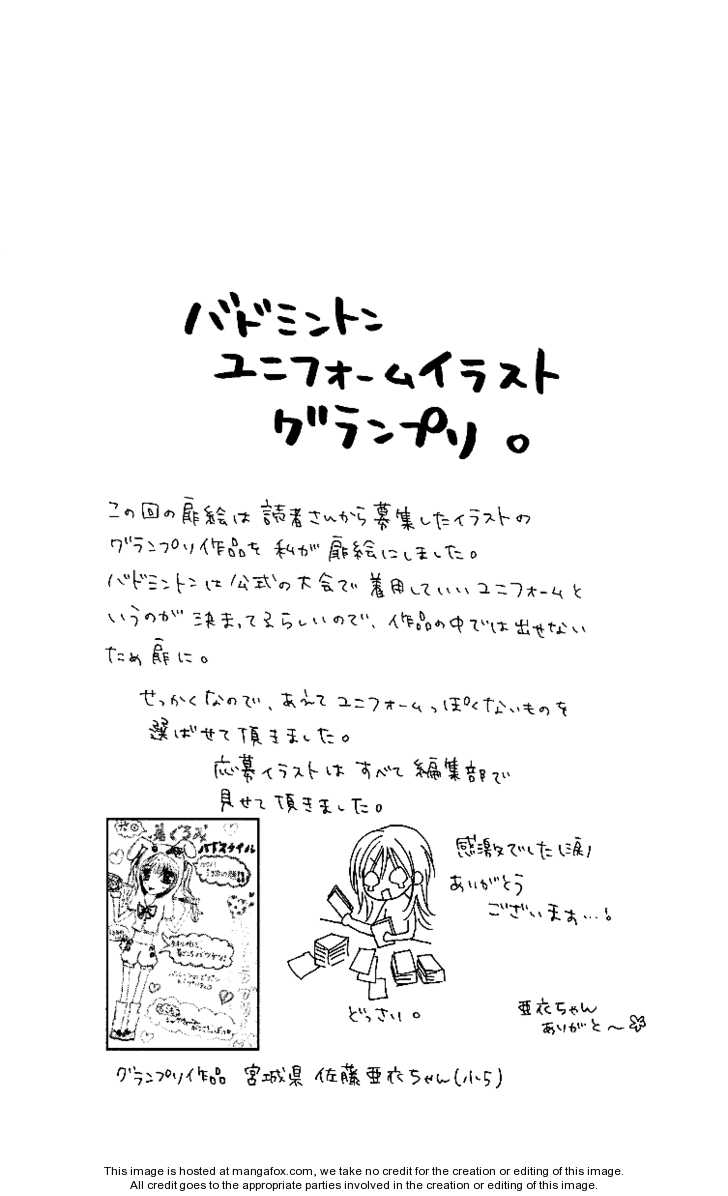 バドミントン
ユニフォームイラスト
グランプリ。
この回の扉絵は読者さんから募集したイラストの
グランプリ作品を私が扉絵にしました。
バドミントンは公式の大会で着用していいユニフォームと
いうのが決まってるらしいので、作品の中では出せない
ため扉に。
せっかくなので、あえてユニフォームっぽくないものを
選ばせて頂きました。
応募イラストはすべて編集部で
見せて頂きました。
着ぐるみ
バドスタイル
感激でした(涙)
ありがとう
ございます…!
どっさり。
亜衣ちゃん
ありがと〜
グランプリ作品 宮城県 佐藤亜衣ちゃん(小5)
This image is hosted at mangafox.com, we take no credit for the creation or editing of this image.
All credit goes to the appropriate parties involved in the creation or editing of this image.